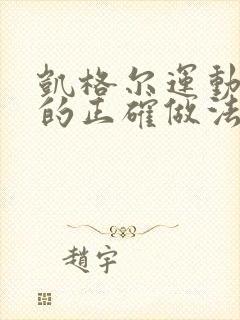 凱格尔運動
的正確做法
趙宇